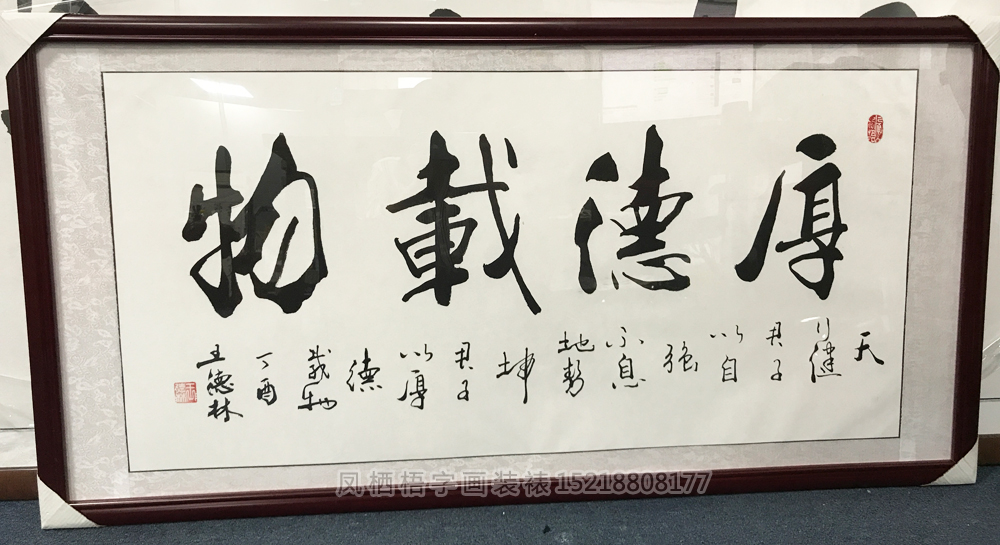 厚德載物
天
行健
君子
以自
强
不息
地势
坤
君子
以厚
德
載物
丁酉
王德林
凤栖梧字画装裱15218808177